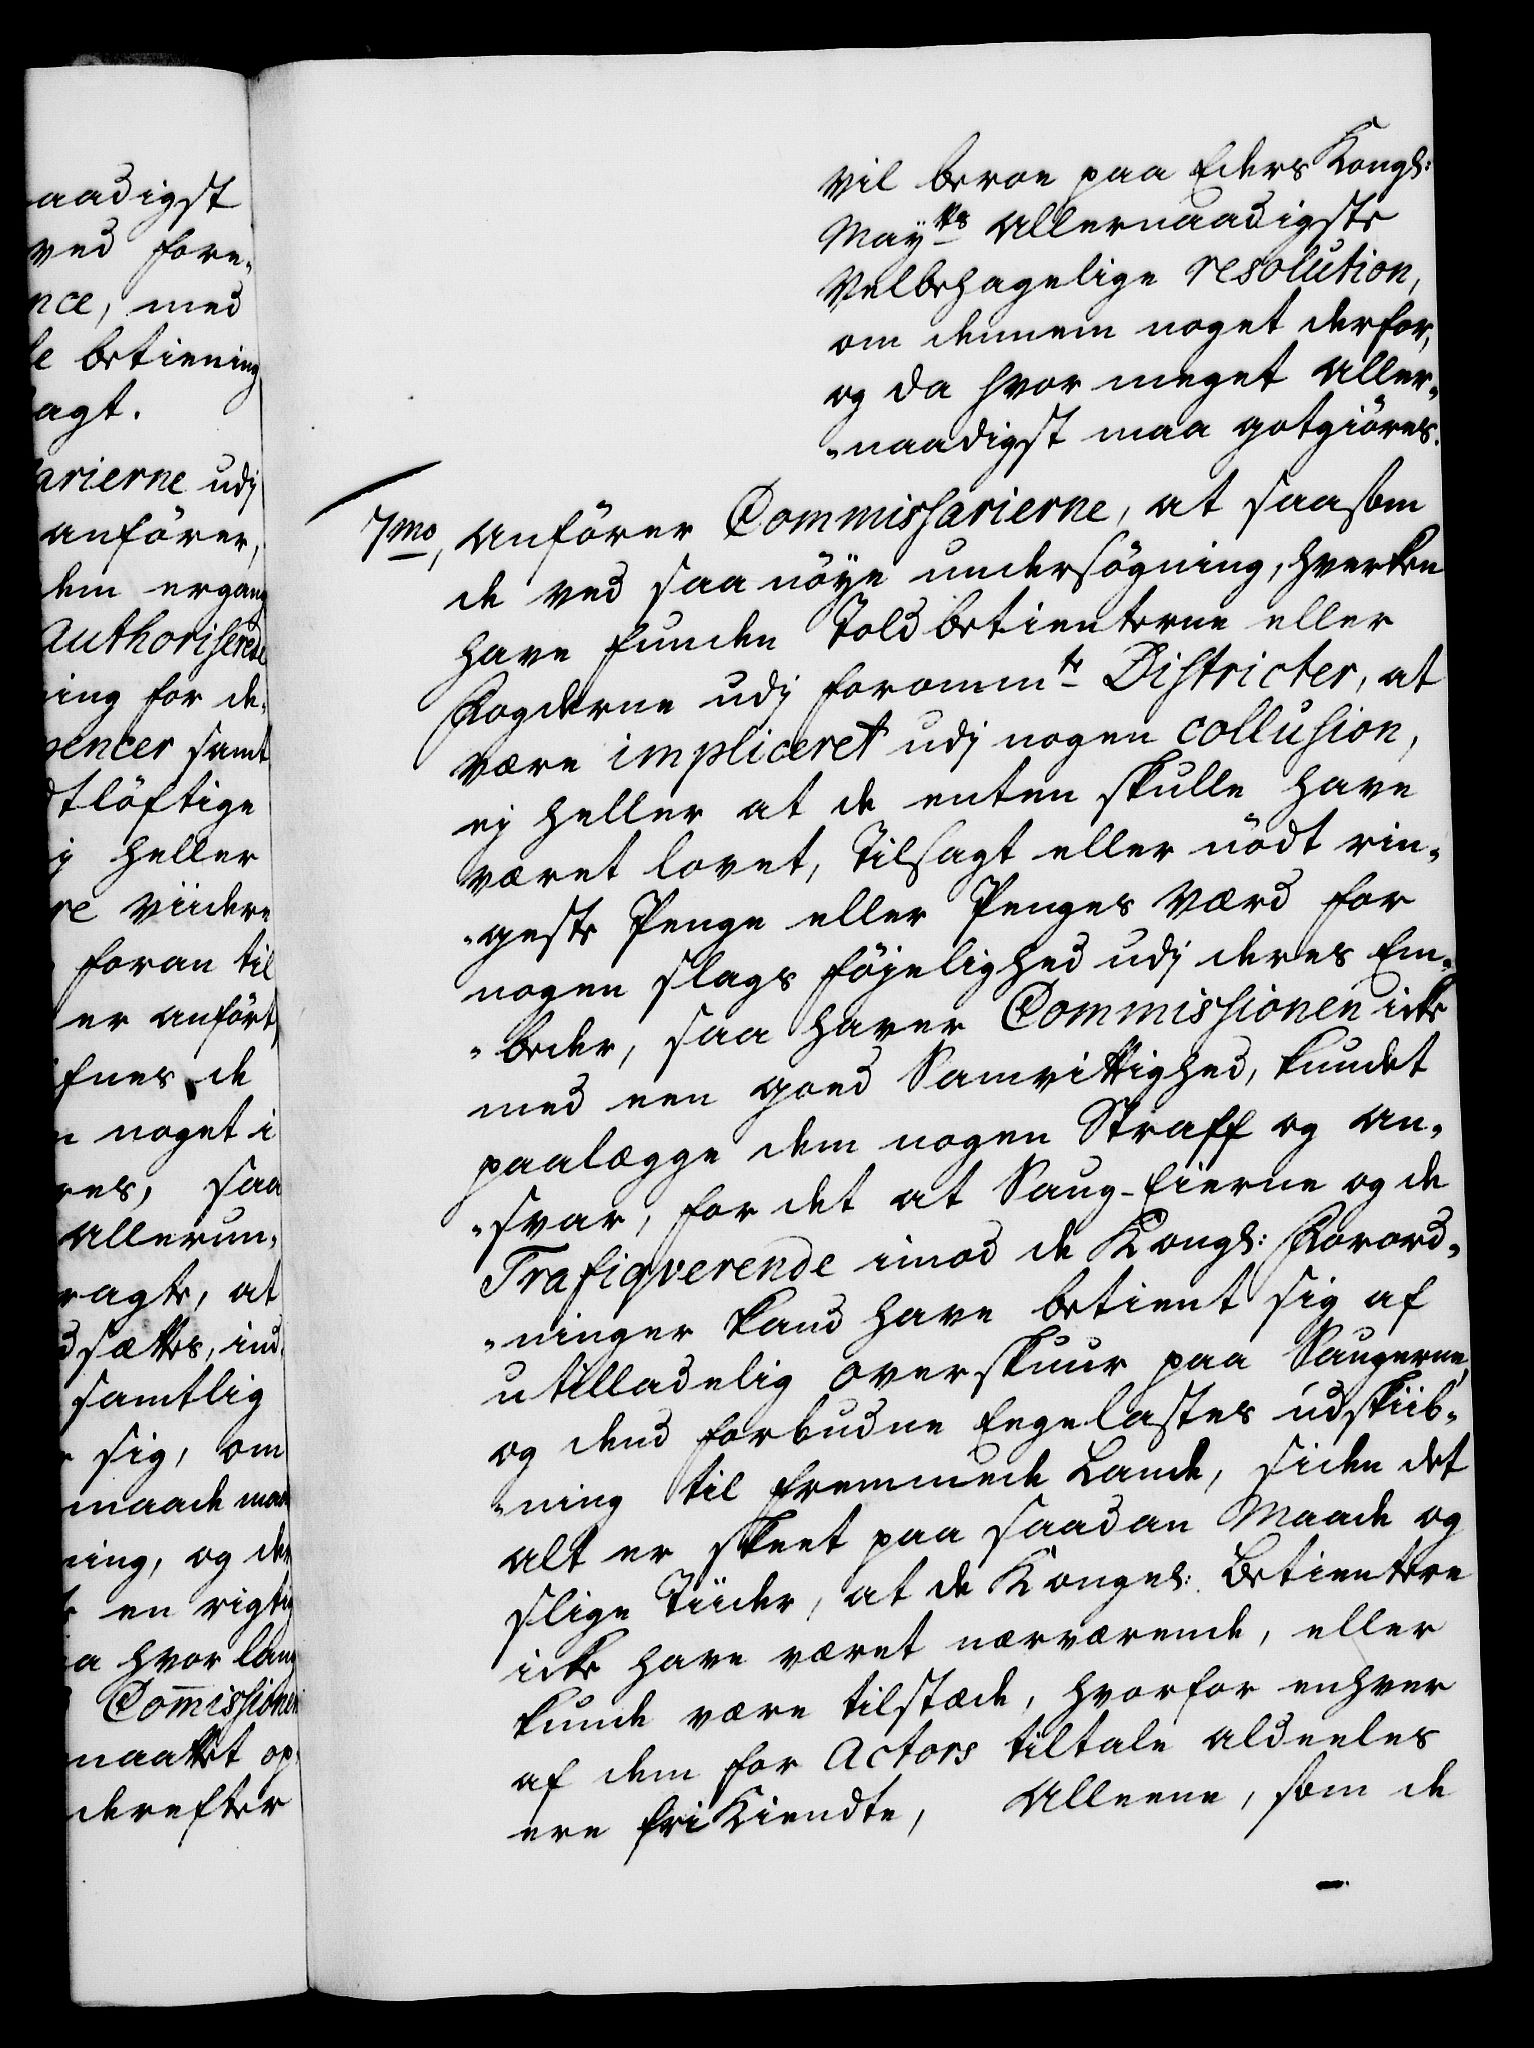 aadigst
ved fore-
nce, med
le betiening
agt.
arierne udj
anförer,
dem ergang
Authoriserede
ning for de-
pencer samt
dtlöftige
j heller
re viidere
foran til
er anfört,
fnes de
n noget i
res, saa
Allerun-
ragte, at
d sættes, ind-
samtlig
sig, om
maade maa
ning, og der
en rigtig
a hvor lang
Com̄issionen
naattet op-
derefter
vil beroe paa Eders Kongl:
Mayts Allernaadigste
Velbehagelige resolution,
om dennem noget derfor,
og da hvor meget Aller-
-naadigst maa gotgiöres.
7mo, Anförer Commissarierne, at saasom
de ved saa nöye undersögning, hverken
have funden Toldbetienterne eller
Fogderne udj forommte Districter, at
være impliceret udj nogen collusion,
ej heller at de enten skulle have
været lovet, Tilsagt eller nödt rin-
-geste Penge eller Penges Værd for
nogen slags föjelighed udj deres Em-
-beder, saa haver Commissionen icke
med een goed Samvittighed, kundet
paalægge dem nogen Straff og An-
-svar, for det at Saug-Eierne og de
Trafiqverende imod de Kongl: Forord-
-ninger kand have betient sig af
utilladelig overskuur paa Saugerne,
og dend forbudne Eegelastes udskib-
-ning til fremmede Lande, siden det
alt er skeet paa saadan Maade og
slige Tiider, at de Kongel: Betientere
icke have været nærværende, eller
kunde være tilstæde, hvorfor enhver
af dem for Actors tiltale aldeeles
ere friKiendte, Alleene, som de